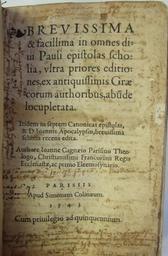 BREVISSIMA
& facillima in omnes di
ui Pauli epistolas scho
lia, vltra priores editio
nes, ex antiquissimis Græ
corum authoribus, abūde
locupletata.
Itidem in septem Canonicas epistolas,
& D. Ioannis Apocalypsin, breuissima
scholia recens edita.
Authore Ioanne Gagnæio Parisino Theo
logo, Christianissimi Francorum Regis
Ecclesiaste, ac primo Eleemosynario.
PARISIIS
Apud Simonem Colinæum.
1543
Cum priuilegio ad quinquennium.